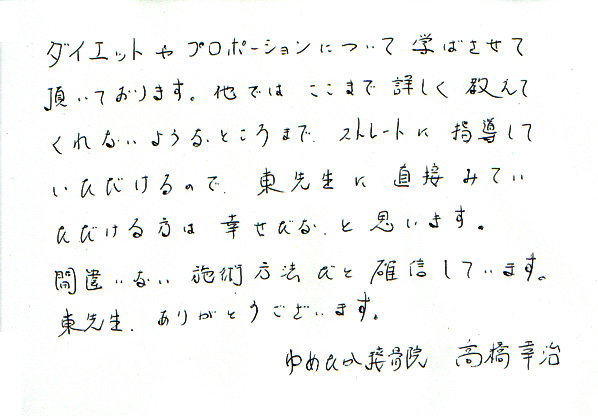 ダイエットやプロポーションについて学ばさせて
頂いております。他ではここまで詳しく教えて
くれないようなところまで、ストレートに指導して
いただけるので、東先生に直接みてい
ただける方は幸せだな、と思います。
間違いない施術方法だと確信しています。
東先生、ありがとうございます。
ゆめたか接骨院 高橋幸治